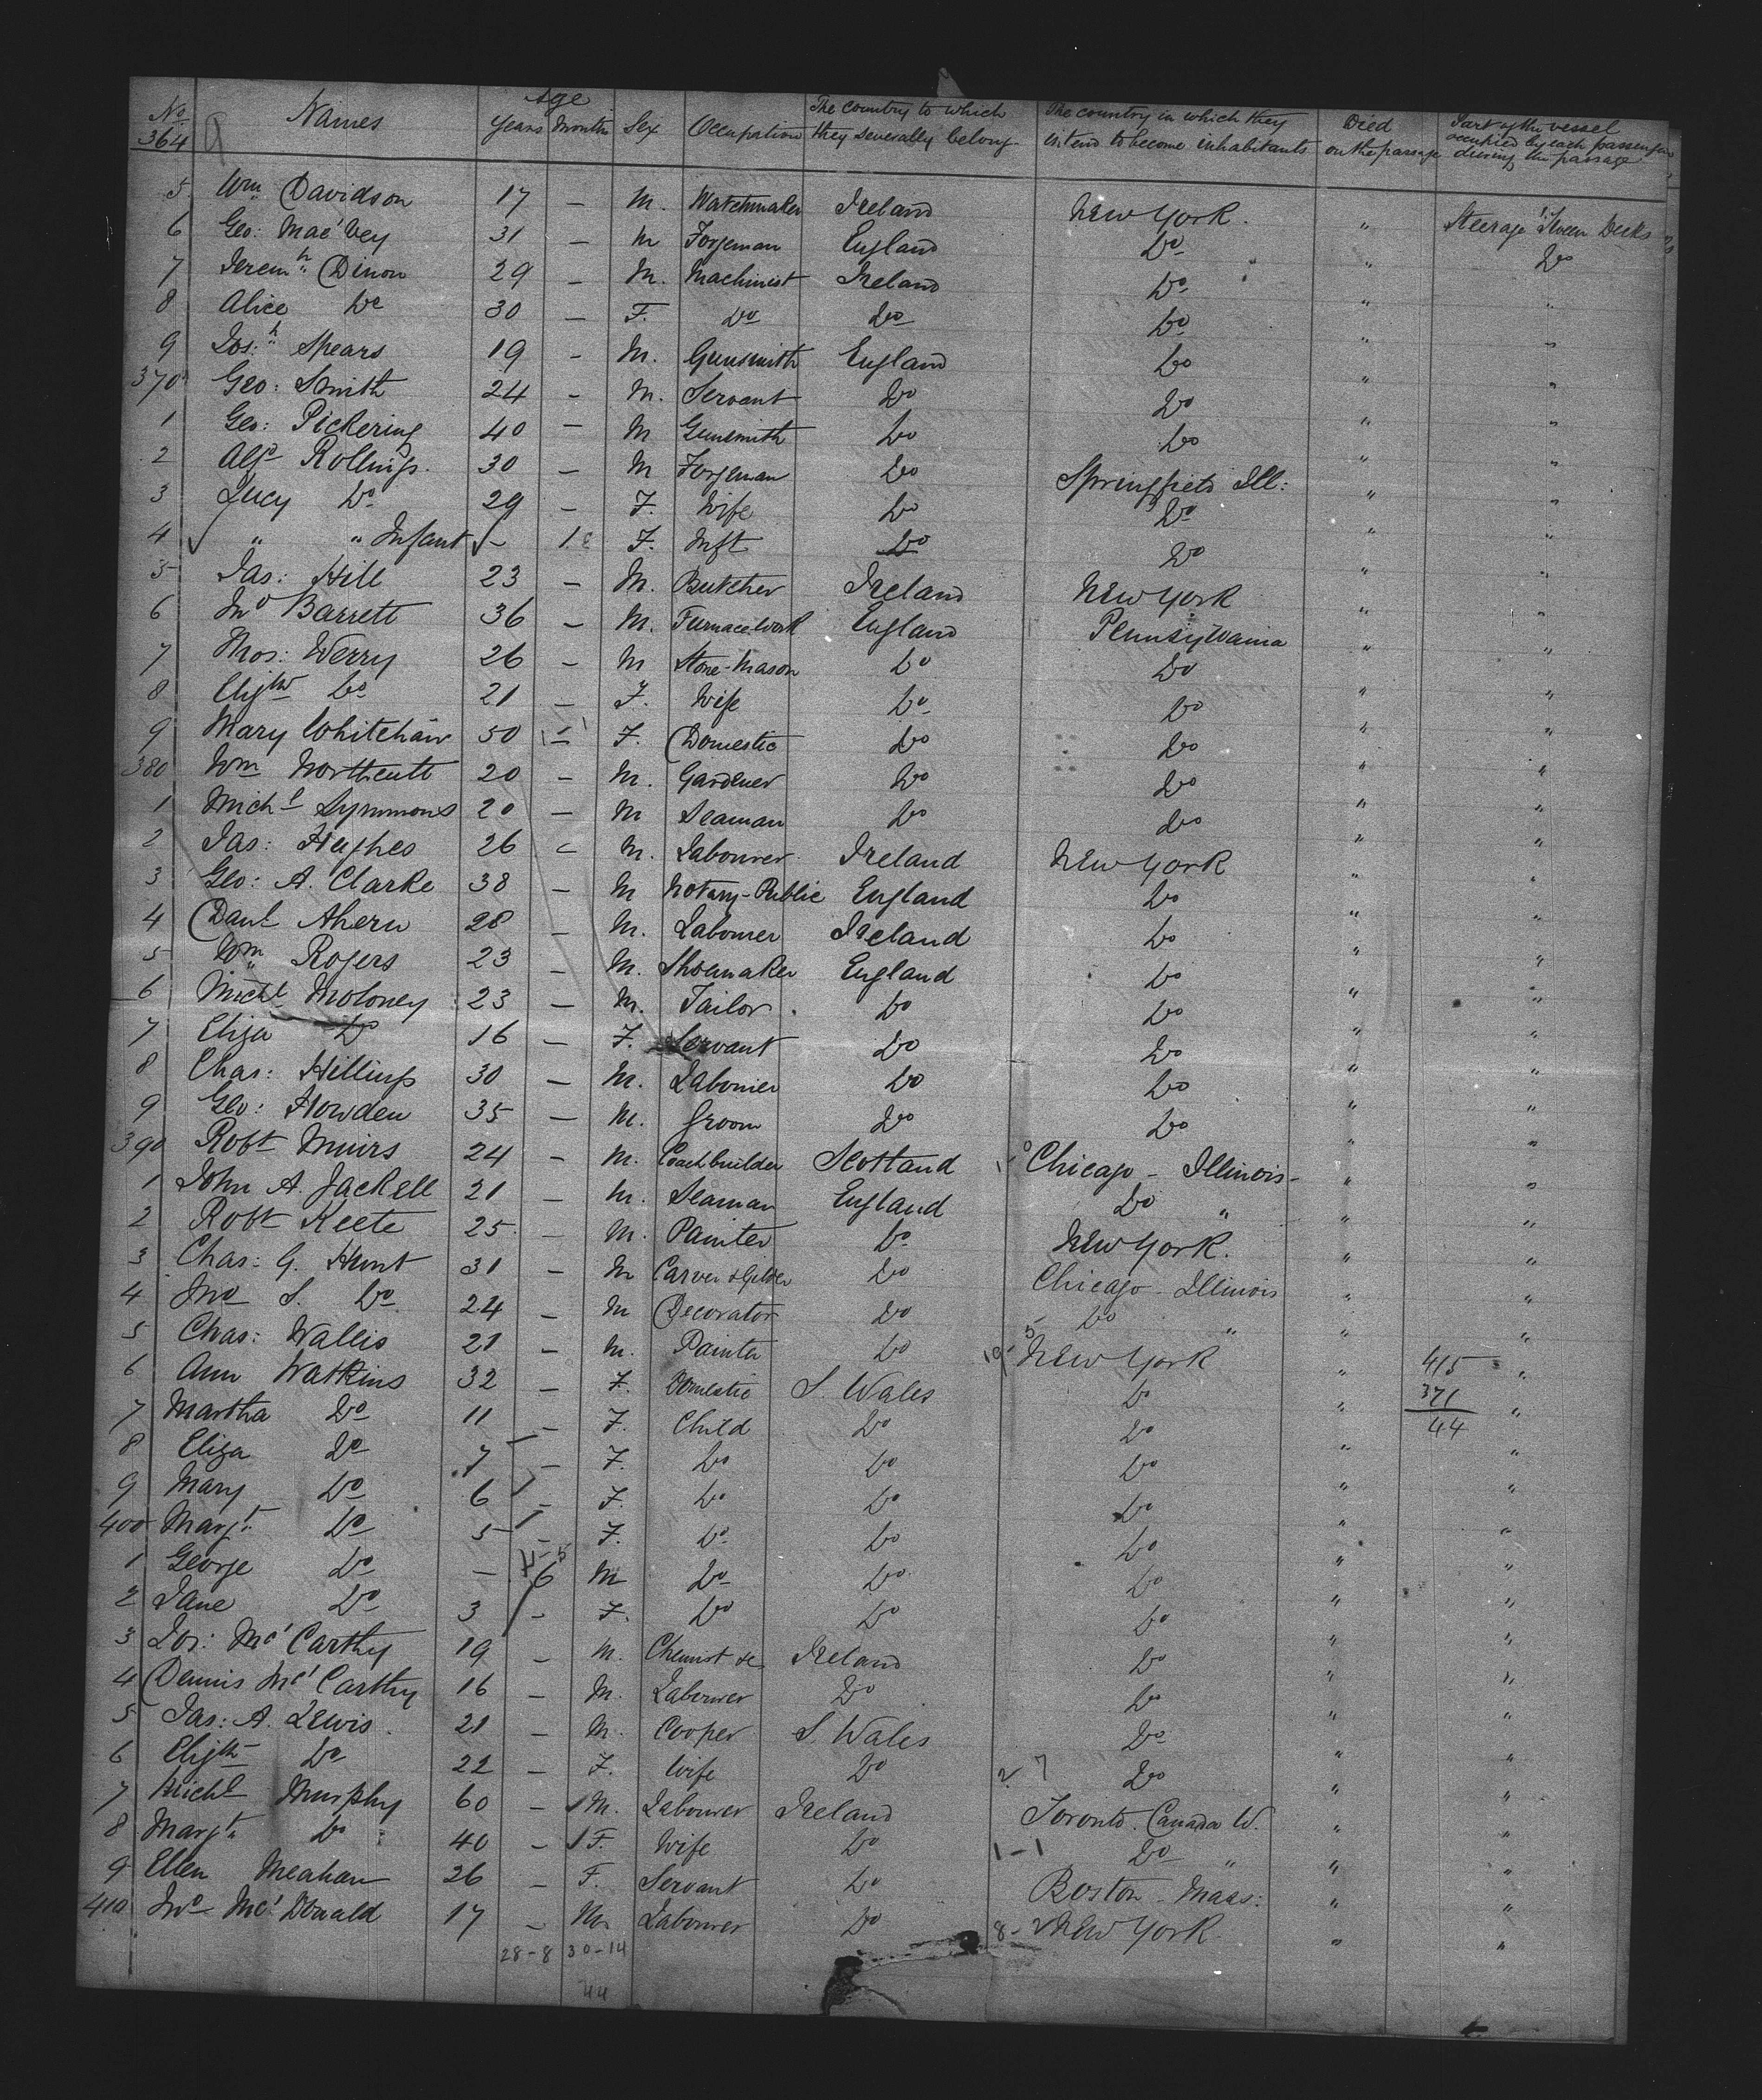 No. Names Age Years Months Sex Occupation The country to which they severally belong. The country in which they intend to become inhabitants Died on the passage Part of the vessel occupied by each passenger during the passage
364
5 Wm Davidson 17 – M. Watchmaker Ireland New York. " Steerage 'tween Decks
6 Geo: Mac'Vey 31 – M Forgeman England Do " Do
7 Jeremh Dinon 29 – M. Machinist Ireland Do " "
8 Alice Do 30 – F. Do Do Do " "
9 Josh Spears 19 – M. Gunsmith England Do " "
370 Geo: Smith 24 – M. Servant Do Do " "
1 Geo: Pickering 40 – M Gunsmith Do Do " "
2 Alfd Rollings. 30 – M Forgeman Do Springfield Ill: " "
3 Lucy Do 29 – F. Wife Do Do " "
4 " " Infant – 1 F. Inft Do Do " "
5 Jas: Hill 23 – M. Butcher Ireland New York " "
6 Jno Barrett 36 – M. Furnace Work England Pennsylvania " "
7 Thos: Werry 26 – M Stone-Mason Do Do " "
8 Elizth Do 21 – F. Wife Do Do " "
9 Mary Whitehair 50 – F. Domestic Do Do " "
380 Wm Northcutt 20 – M. Gardener Do Do " "
1 Michl Symmons 20 – M Seaman Do Do " "
2 Jas: Hughes 26 – M. Labourer Ireland New York " "
3 Geo: A. Clarke 38 – M Notary-Public England Do " "
4 Danl Ahern 28 – M. Labourer Ireland Do " "
5 Wm Rogers 23 – M. Shoemaker England Do " "
6 Michl Moloney 23 – M. Tailor Do Do " "
7 Eliza Do 16 – F. Servant Do Do " "
8 Chas: Hillings 30 – M. Labourer Do Do " "
9 Geo: Howden 35 – M. Groom Do Do " "
390 Robt Muirs 24 – M. Coachbuilder Scotland Chicago – Illinois – " "
1 John A. Jackell 21 – M. Seaman England Do " " "
2 Robt Keete 25 – M. Painter Do New York. " "
3 Chas: G. Hunt 31 – M Carver & Gilder Do Chicago – Illinois " "
4 Jno S. Do 24 – M Decorator Do Do " " "
5 Chas: Wallis 21 – M. Painter Do New York " 415 "
6 Ann Watkins 32 – F. Domestic S. Wales Do " 371 "
7 Martha Do 11 – F. Child Do Do " 44 "
8 Eliza Do 7 – F. Do Do Do " "
9 Mary Do 6 – F. Do Do Do " "
400 Margt Do 5 – F. Do Do Do " "
1 George Do – 6 M Do Do Do " "
2 Jane Do 3 – F. Do Do Do " "
3 Jos: Mc'Carthy 19 – M. Chemist &c Ireland Do " "
4 Dennis Mc'Carthy 16 – M. Labourer Do Do " "
5 Jas: A. Lewis. 21 – M. Cooper S. Wales Do " "
6 Elizth Do 22 – F. Wife Do Do " "
7 Michl Murphy 60 – M. Labourer Ireland Toronto. Canada W. " "
8 Margt Do 40 – F. Wife Do Do " " "
9 Ellen Meahan 26 – F. Servant Do Boston – Mass: " "
410 Jno Mc'Donald 17 – M. Labourer Do New York. " "
28-8 30-14
44